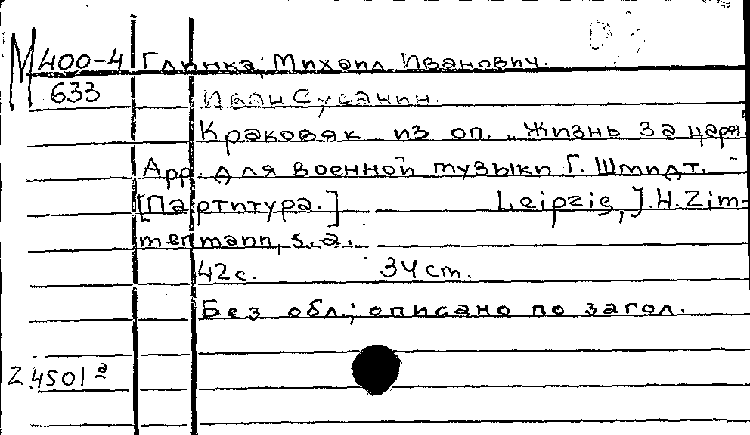 М 400-4 Глинка, Михаил Иванович.
633 Иван Сусанин.
Краковяк из оп. „Жизнь за царя.
Арр. для военной музыки Г. Шмидт.
[Партитура.] Leipzig, J.H. Zim-
mermann, s. a.
42 с. 34 cm.
Без обл.; описано по загол.
Z.4501 a